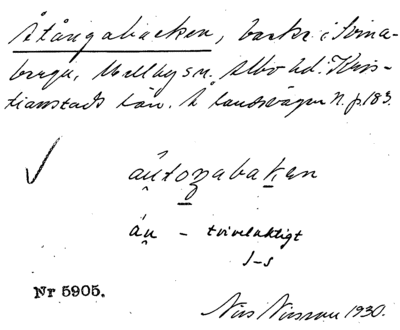 Stångabacken, backe i Svina-
berga, Mellby sn. Albo hd. Kris-
tianstads län. Å landsvägen N. p. 183.
✓ áu̯toŋabakan
áu̯ – tvivelaktigt
J-s
Nr 5905.
Nils Nilsson 1930.